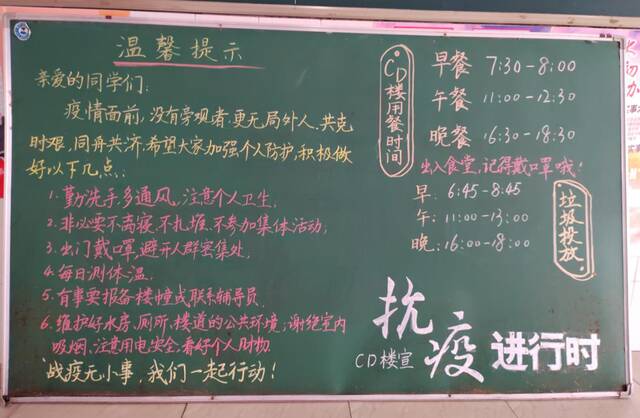 温馨提示
亲爱的同学们:
疫情面前,没有旁观者,更无局外人.共克
时艰,同舟共济,希望大家加强个人防护,积极做
好以下几点:
1.勤洗手多通风,注意个人卫生.
2.非必要不离寝,不扎堆,不参加集体活动;
3.出门戴口罩,避开人群密集处.
4.每日测体温.
5.有事要报备楼幢或联系辅导员.
6.维护好水房,厕所,楼道的公共环境;谢绝室内
吸烟,注意用电安全;看好个人财物.
战疫无小事,我们一起行动!
CD楼用餐时间
早餐 7:30-8:00
午餐 11:00-12:30
晚餐 16:30-18:30
出入食堂,记得戴口罩哦!
早:6:45-8:45
午:11:00-13:00
晚:16:00-18:00
垃圾投放
抗疫进行时
CD楼宣